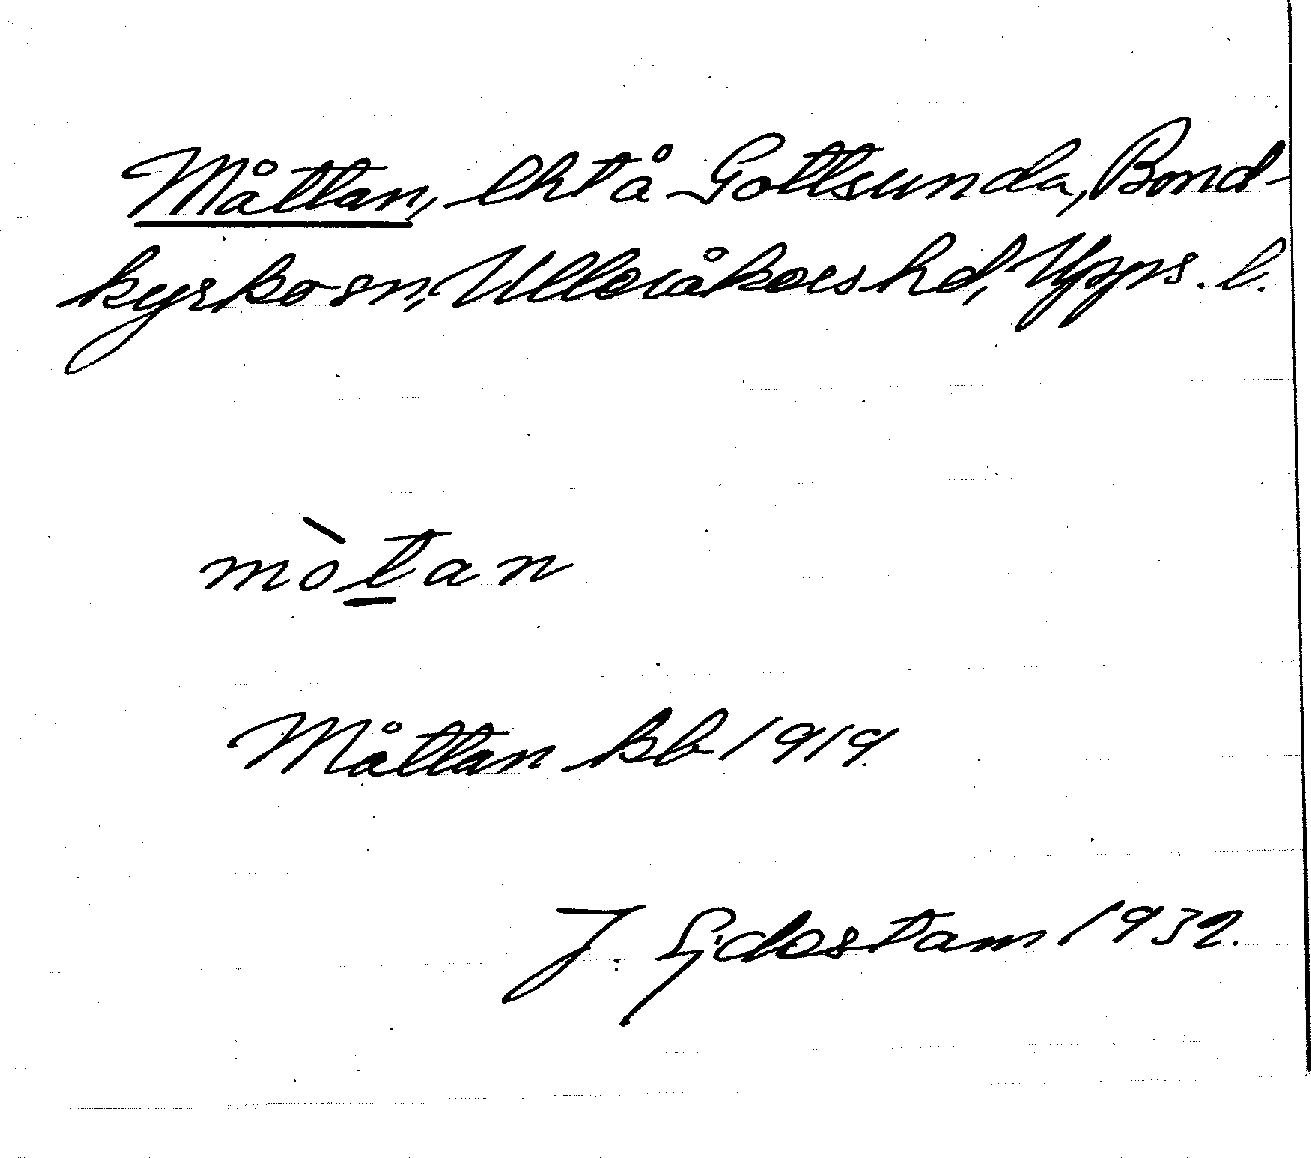 Måttan, lht å Gottsunda, Bond-
kyrko sn, Ulleråkers hd, Upps. l.
mòtan
Måttan kb 1919
J. Sjdostam 1932.